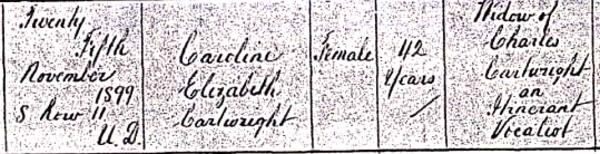 Twenty
Fifth
November
1899
S Row 11
U.D.
Caroline
Elizabeth
Cartwright
Female
42
Years
Widow of
Charles
Cartwright
an
Itinerant
Vocalist